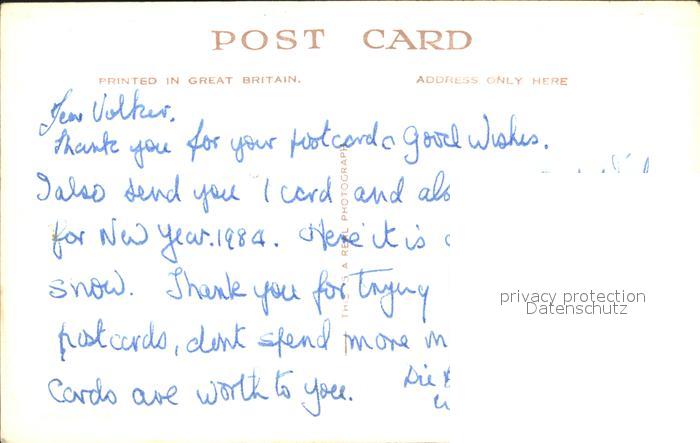 POST CARD
PRINTED IN GREAT BRITAIN.
ADDRESS ONLY HERE
Dear Volker.
Thank you for your postcard & Good Wishes.
I also send you 1 card and
for New Year.1984. Here it is
snow. Thank you for trying
postcards, dont spend more
Cards are worth to you.
THIS IS A REAL PHOTOGRAPH
privacy protection
Datenschutz